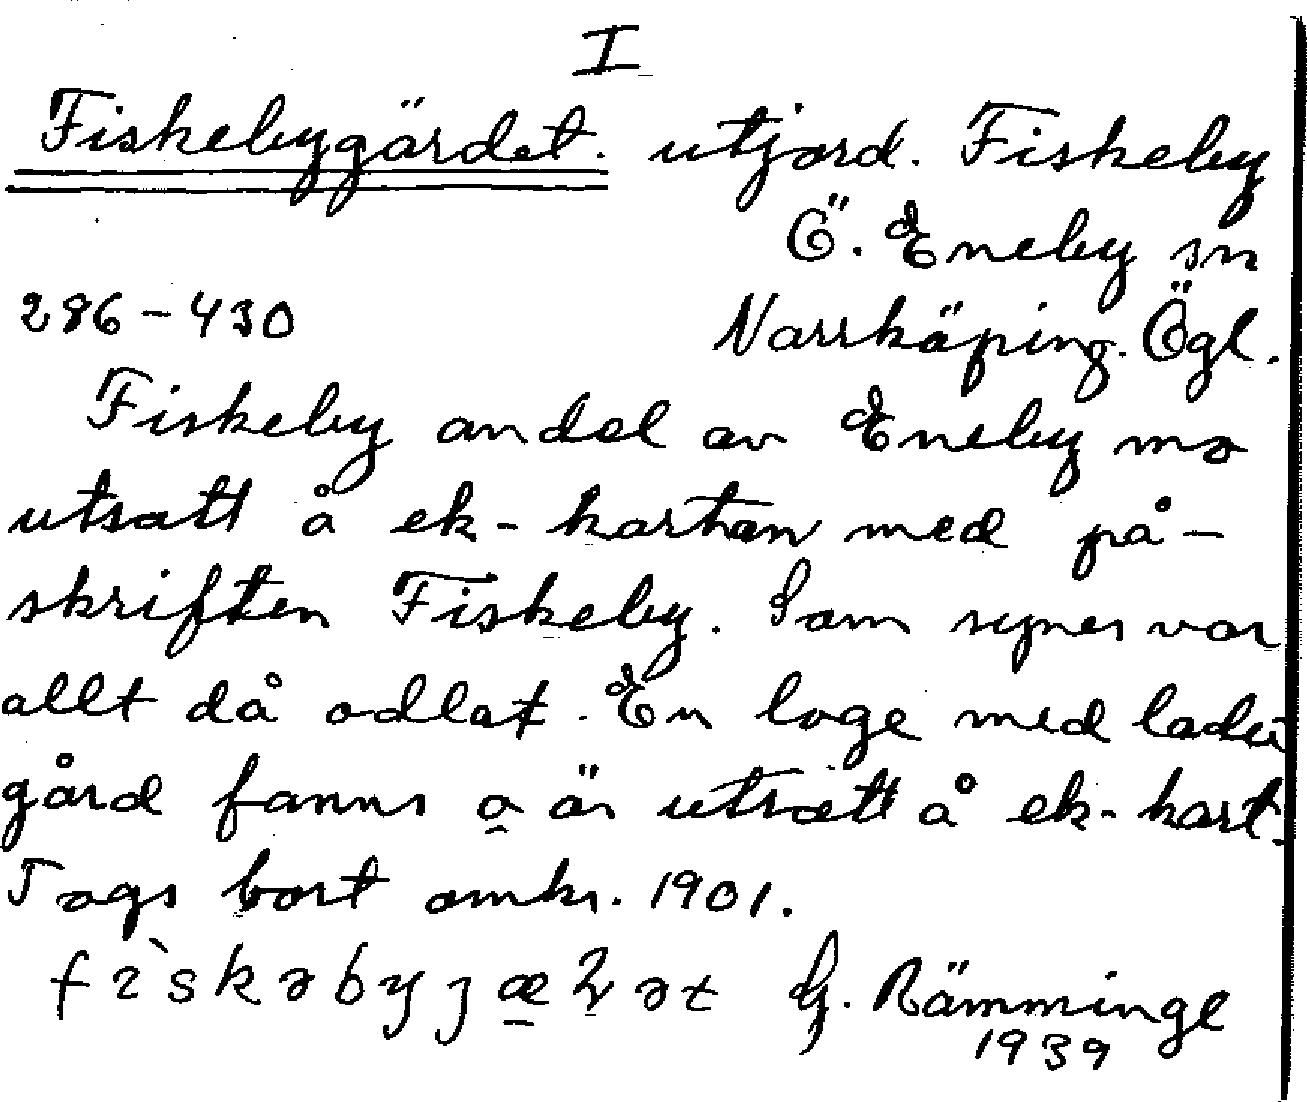 I
Fiskebygärdet. utjord. Fiskeby
Ö. Eneby sn
286-430 Norrköping. Ögl.
Fiskeby andel av Eneby mo
utsatt å ek-kartan med på-
skriften Fiskeby. Som synes var
allt då odlat. En loge med ladu
gård fanns o är utsatt å ek-kart.
Togs bort omkr. 1901.
G. Rämminge
1939